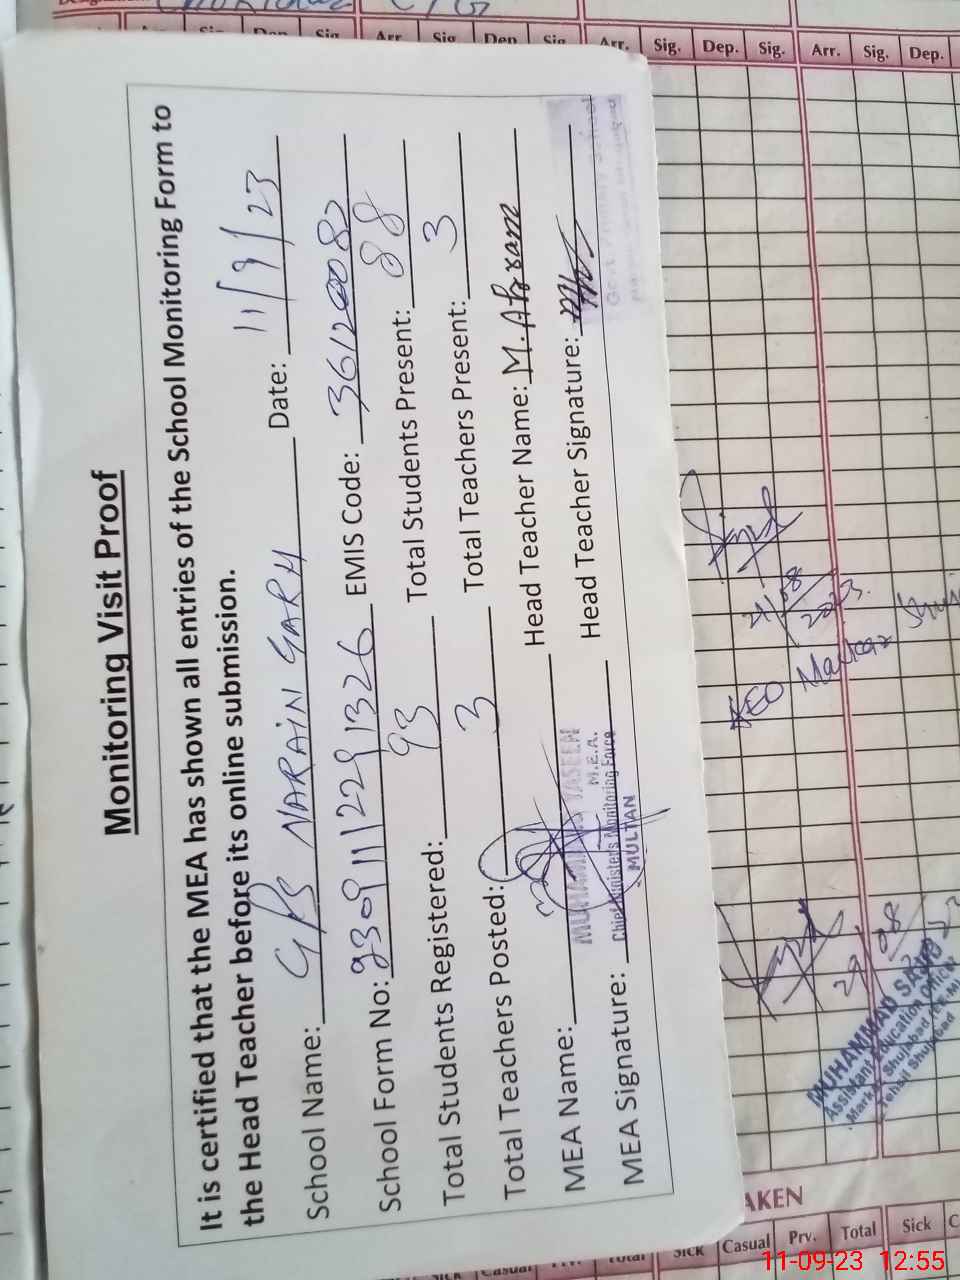 Monitoring Visit Proof
It is certified that the MEA has shown all entries of the School Monitoring Form to
the Head Teacher before its online submission.
School Name: GPS NARAIN GARH Date: 11/9/23
School Form No: 9309112291326 EMIS Code: 36120082
Total Students Registered: 93 Total Students Present: 88
Total Teachers Posted: 3 Total Teachers Present: 3
MEA Name: Head Teacher Name: M. Akram
MEA Signature: Head Teacher Signature:
M.E.A.
Chief Minister's Monitoring Force
MULTAN
Arr. Sig. Dep. Sig. Arr. Sig. Dep. Sig. Arr. Sig. Dep.
08
2023
AEO
MUHAMMAD
Assistant Education Officer
Tehsil Shujabad
AKEN
Sick Casual Prv. Total Sick
11-09-23 12:55